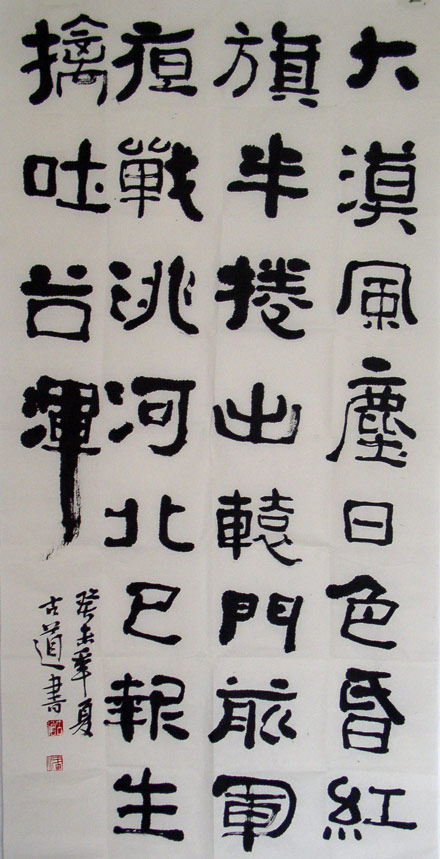 大漠風塵日色昏紅
旗半捲出轅門前軍
夜戰洮河北已報生
擒吐谷渾
癸未年夏
古道書